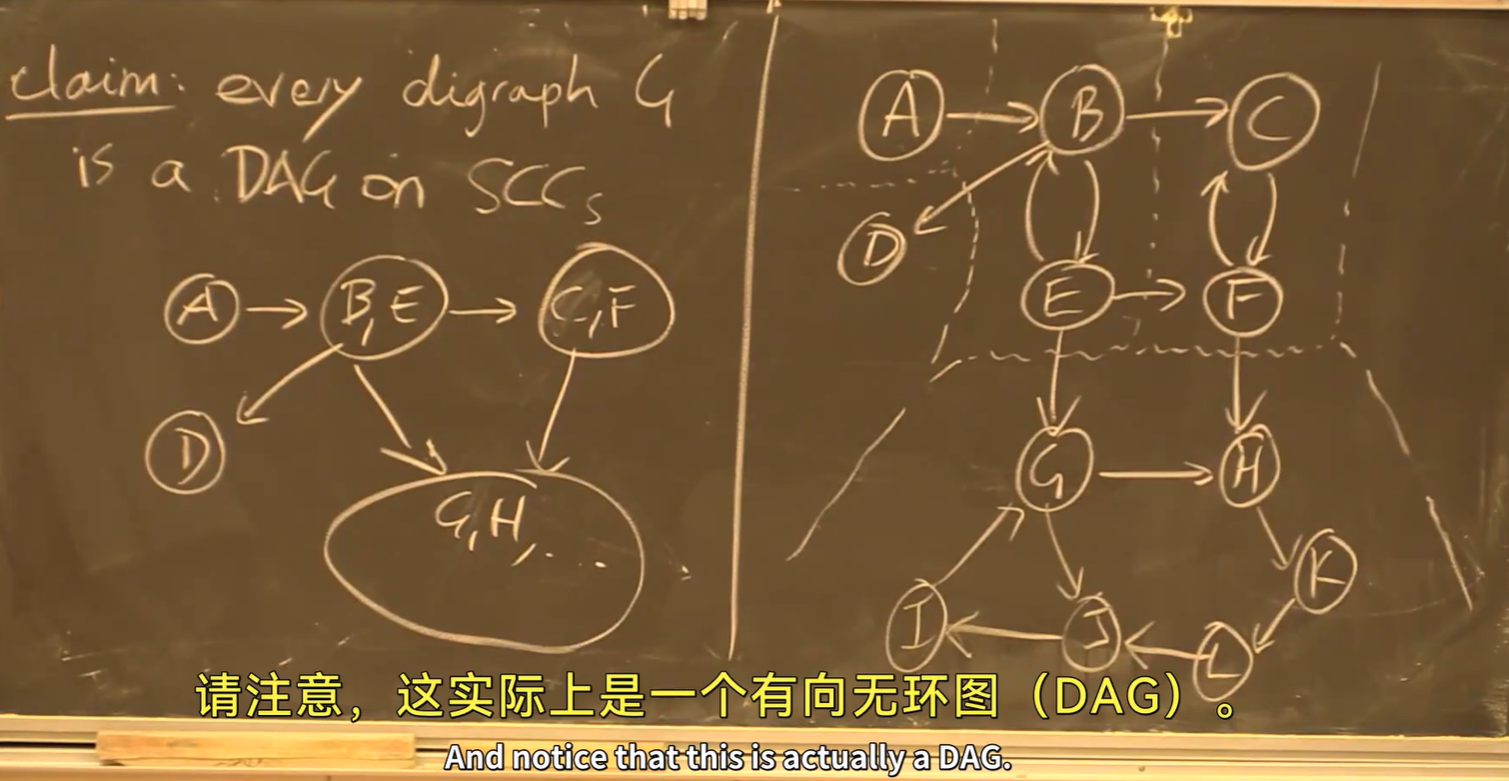 claim: every digraph G
is a DAG on SCCs
A B,E C,F
D
G,H,...
A B C
D
E F
G H
K
I J L
请注意，这实际上是一个有向无环图（DAG）。
And notice that this is actually a DAG.